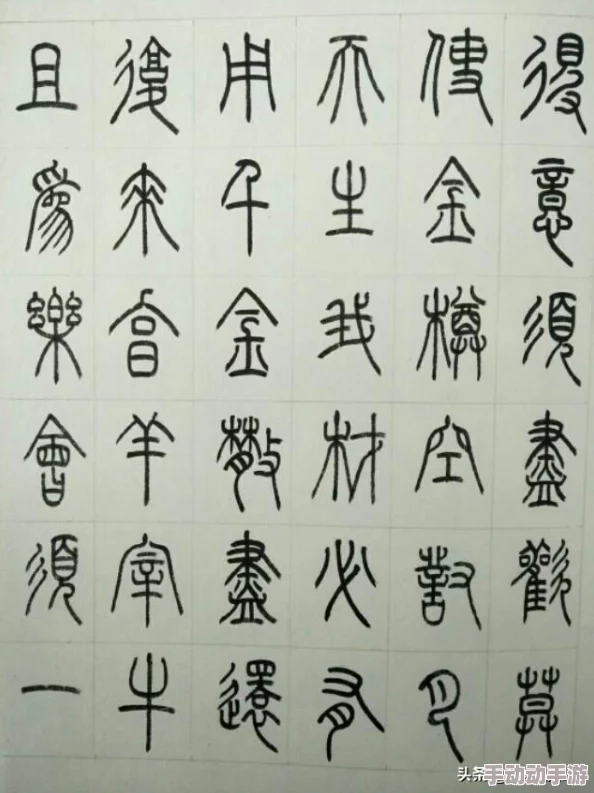 得意須盡歡莫
使金樽空對月
天生我材必有
用千金散盡還
復來烹羊宰牛
且爲樂會須一
头条
手动动手游